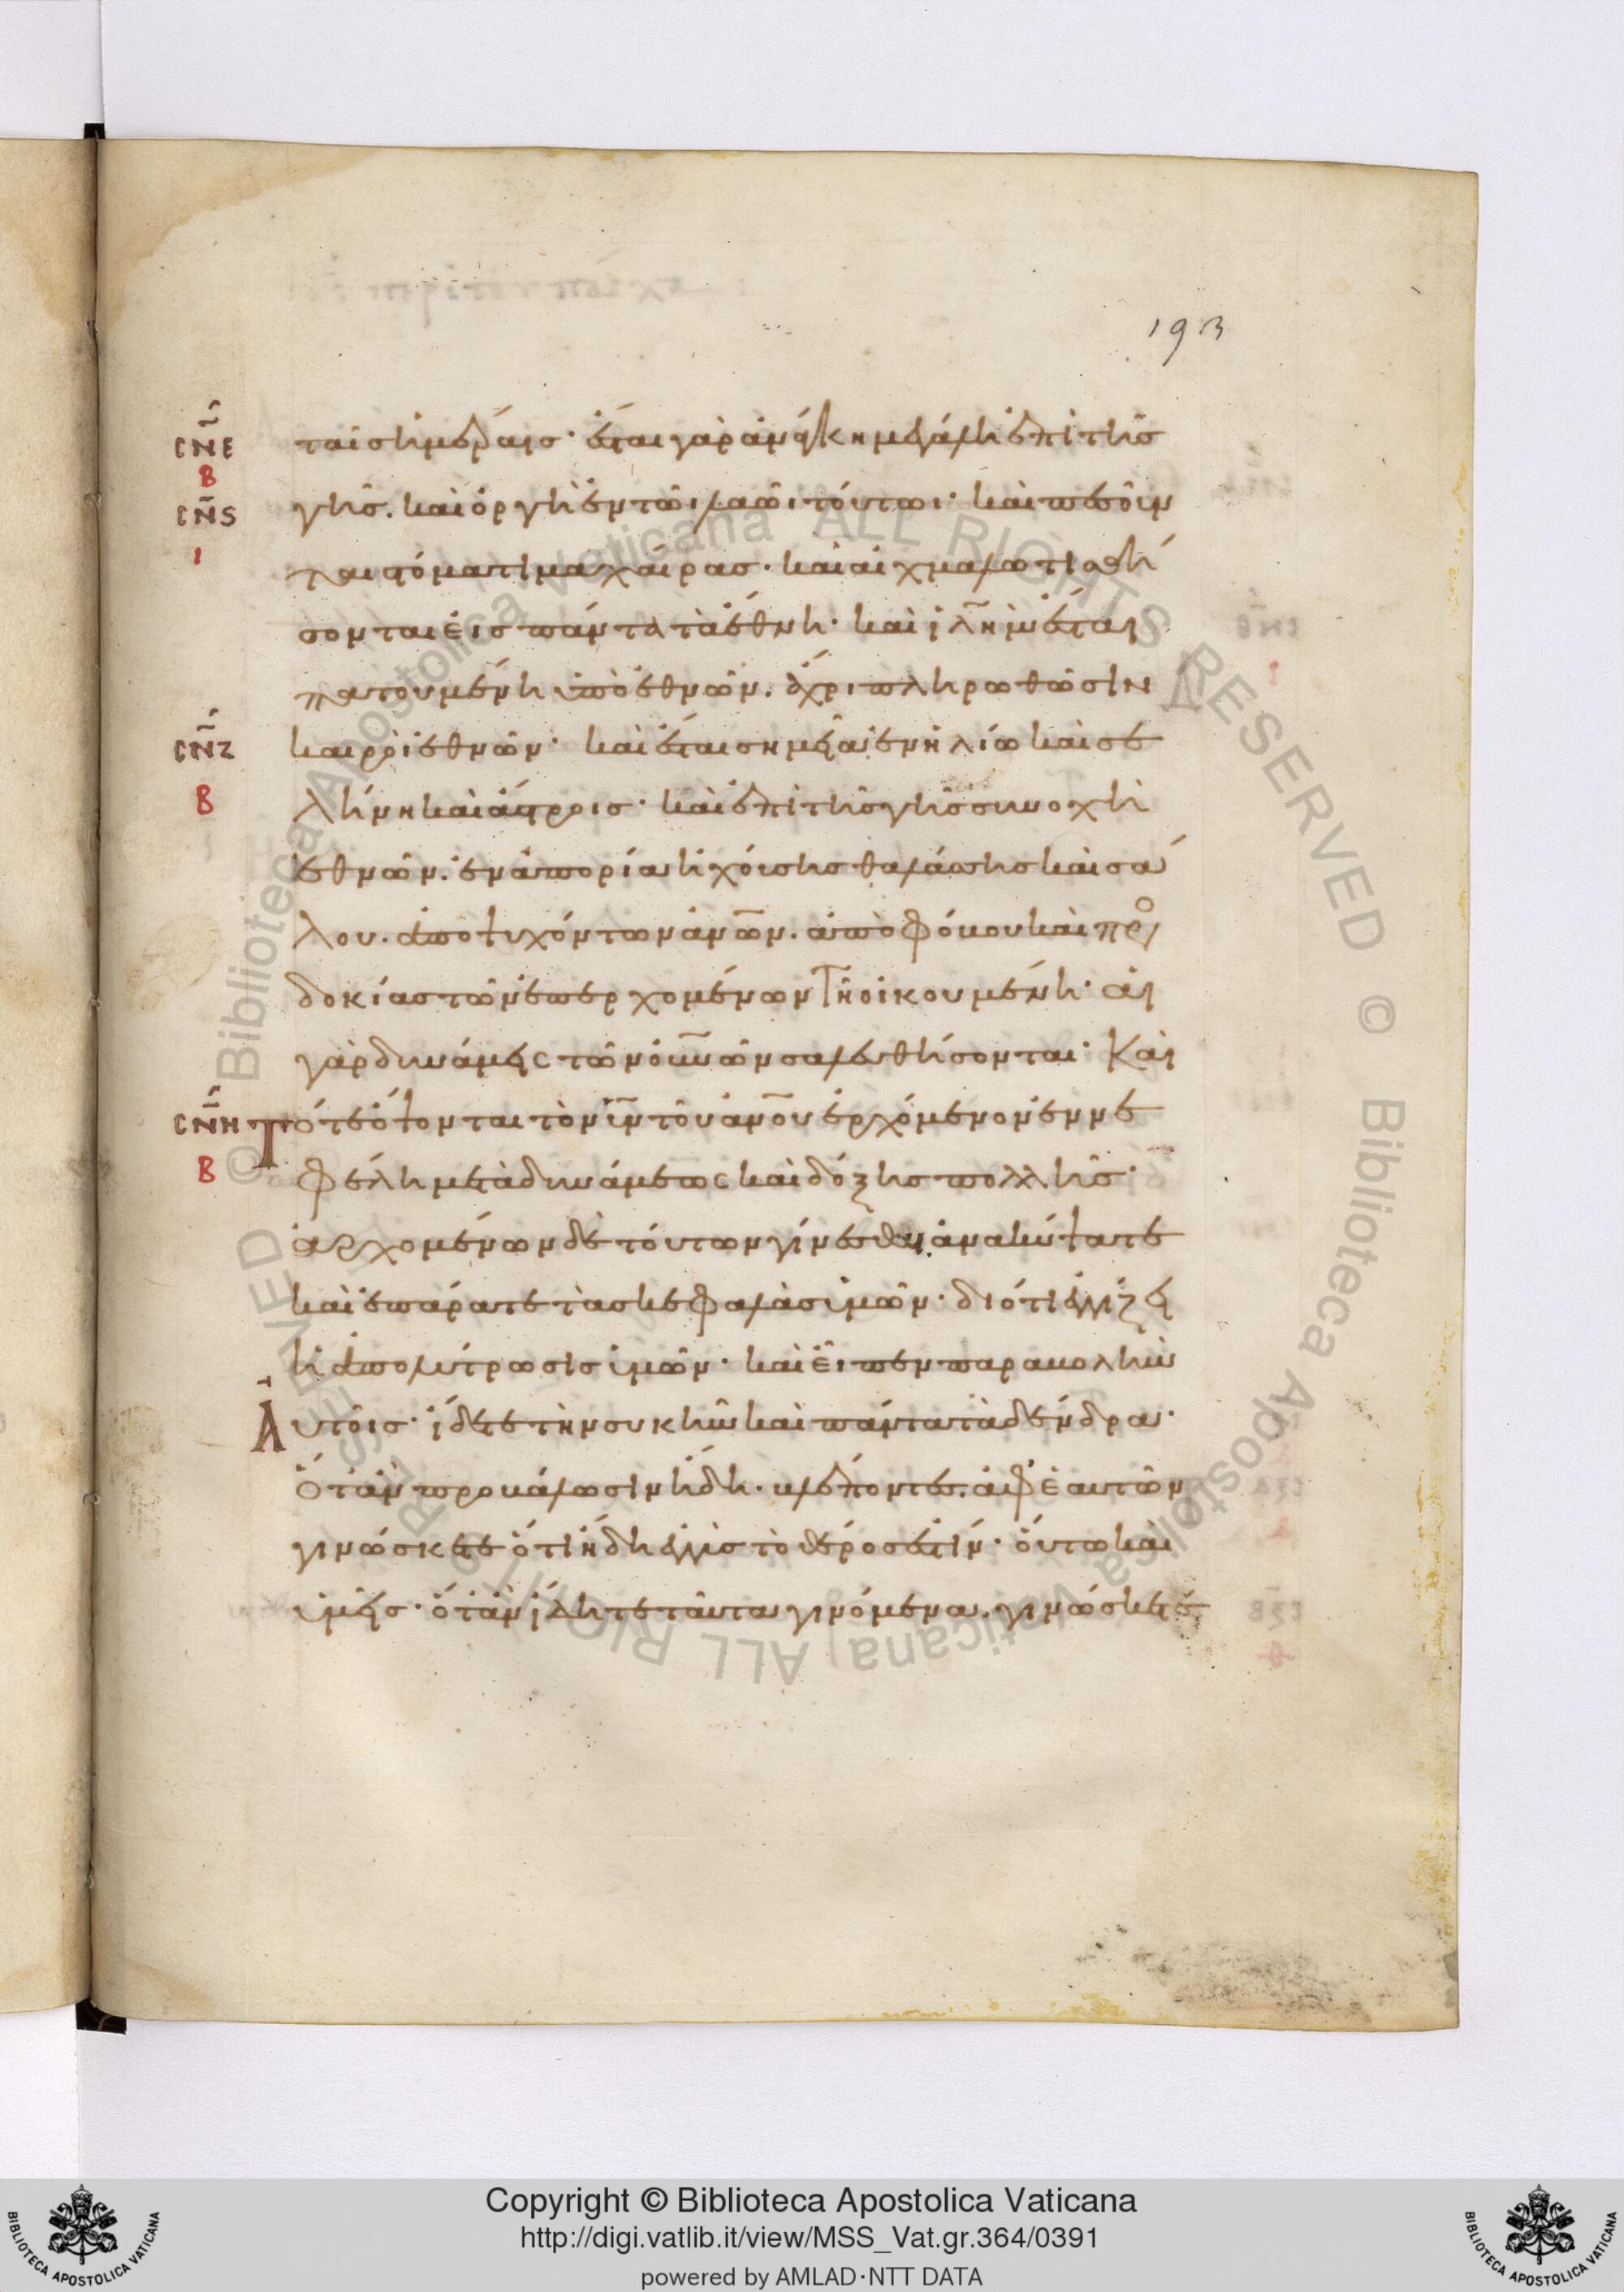 193
ταις ἡμέραις· ἔσται γὰρ ἀνάγκη μεγάλη ἐπὶ τῆς
CN̄E
B
γῆς. καὶ ὀργὴ ἐν τῶι λαῶι τούτωι· καὶ πεσοῦν
CN̄S
I
ται στόματι μαχαίρας· καὶ αἰχμαλωτισθή
σονται εἰς πάντα τὰ ἔθνη· καὶ ἰλ̄ημ ἔσται
πατουμένη ὑπὸ ἐθνῶν. ἄχρι πληρωθῶσιν
καιροὶ ἐθνῶν· καὶ ἔσται σημεῖα ἐν ἡλίω καὶ σε
CN̄Z
B
λήνη καὶ ἄστροις· καὶ ἐπὶ τῆς γῆς συνοχὴ
ἐθνῶν. ἐν ἀπορία ἠχούσης θαλάσσης καὶ σά
λου. ἀποψυχόντων ἀν̄ων. ἀπὸ φόβου καὶ προσ
δοκίας τῶν ἐπερχομένων τῇ οἰκουμένη· αἱ
γὰρ δυνάμεις τῶν οὐν̄ῶν σαλευθήσονται· Καὶ
τότε ὄψονται τὸν ῡν τοῦ ἀν̄ου ἐρχόμενον ἐν νε
CN̄H
B
φέλη μετὰ δυνάμεως καὶ δόξης πολλῆς·
ἀρχομένων δὲ τούτων γίνεσθαι. ἀνακύψατε
καὶ ἐπάρατε τὰς κεφαλὰς ὑμῶν· διότι ἐγγίζει
ἡ ἀπολύτρωσις ὑμῶν· καὶ εἶπεν παραβολὴν
Αὐτοῖς· ἴδετε τὴν συκῆν καὶ πάντα τὰ δένδρα·
ὅταν προβάλωσιν ἤδη. βλέποντες. ἀφ' ἑαυτῶν
γινώσκετε ὅτι ἤδη ἐγγὺς τὸ θέρος ἐστίν· οὕτω καὶ
ὑμεῖς· ὅταν ἴδητε ταῦτα γινόμενα. γινώσκετε
Copyright © Biblioteca Apostolica Vaticana
http://digi.vatlib.it/view/MSS_Vat.gr.364/0391
powered by AMLAD·NTT DATA
BIBLIOTECA APOSTOLICA VATICANA
BIBLIOTECA APOSTOLICA VATICANA
© Biblioteca Apostolica Vaticana ALL RIGHTS RESERVED © Biblioteca Apostolica Vaticana ALL RIGHTS RESERVED